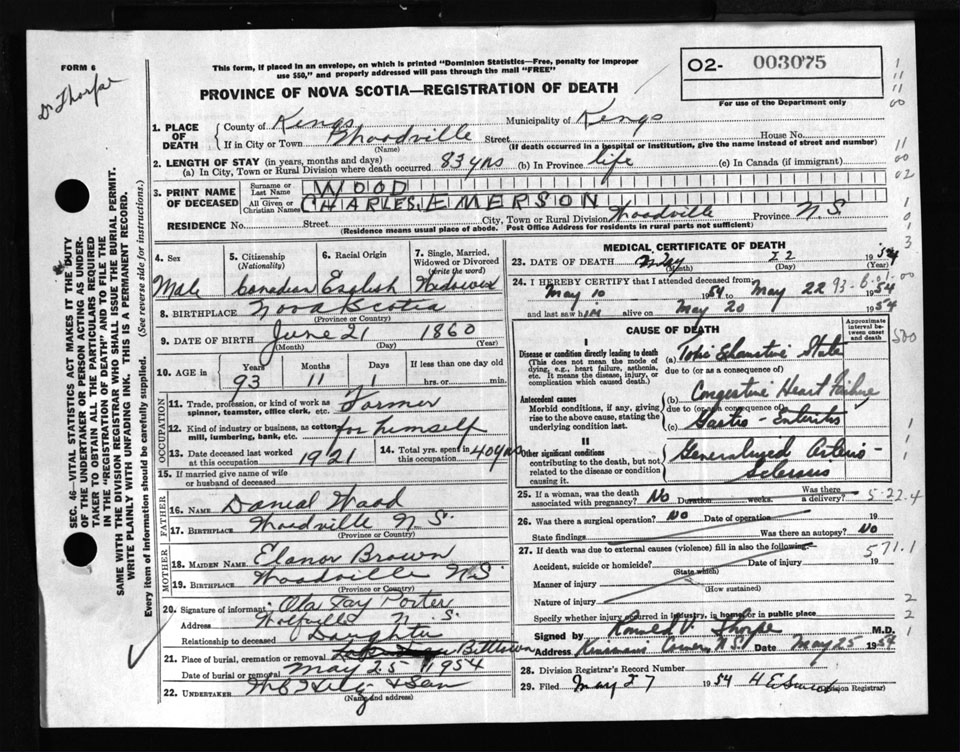 FORM 6
Dr Thorpe
This form, if placed in an envelope, on which is printed "Dominion Statistics—Free, penalty for improper
use $50," and properly addressed will pass through the mail "FREE"
PROVINCE OF NOVA SCOTIA—REGISTRATION OF DEATH
O2- 003075
For use of the Department only
1. PLACE OF DEATH
County of Kings Municipality of Kings
If in City or Town Woodville Street House No.
(Name) (If death occurred in a hospital or institution, give the name instead of street and number)
2. LENGTH OF STAY (in years, months and days)
(a) In City, Town or Rural Division where death occurred 83 yrs (b) In Province life (c) In Canada (if immigrant)
3. PRINT NAME OF DECEASED
Surname or Last Name WOOD
All Given or Christian Names CHARLES EMERSON
RESIDENCE No. Street City, Town or Rural Division Woodville Province N.S
(Residence means usual place of abode. Post Office Address for residents in rural parts not sufficient)
4. Sex
Male
5. Citizenship (Nationality)
Canadian
6. Racial Origin
English
7. Single, Married, Widowed or Divorced (write the word)
Widower
8. BIRTHPLACE Nova Scotia
(Province or Country)
9. DATE OF BIRTH June 21 1860
(Month) (Day) (Year)
10. AGE in Years Months Days If less than one day old
93 11 1 hrs. or min.
OCCUPATION
11. Trade, profession, or kind of work as spinner, teamster, office clerk, etc. Farmer
12. Kind of industry or business, as cotton mill, lumbering, bank, etc. for himself
13. Date deceased last worked at this occupation 1921
14. Total yrs. spent in this occupation 40 yrs
15. If married give name of wife or husband of deceased
FATHER
16. NAME Daniel Wood
17. BIRTHPLACE Woodville N.S.
(Province or Country)
MOTHER
18. MAIDEN NAME Elanor Brown
19. BIRTHPLACE Woodville N.S.
(Province or Country)
20. Signature of informant Ola Fay Porter
Address Wolfville N.S.
Relationship to deceased Daughter
21. Place of burial, cremation or removal Billtown
Date of burial or removal May 25 1954
22. UNDERTAKER & Son
(Name and address)
MEDICAL CERTIFICATE OF DEATH
23. DATE OF DEATH May 22 1954
(Month) (Day) (Year)
24. I HEREBY CERTIFY that I attended deceased from:
May 10 1954 to May 22 1954
93-6-1-00
and last saw him alive on May 20 1954
CAUSE OF DEATH
Approximate interval between onset and death
I
Disease or condition directly leading to death (a) State
(This does not mean the mode of dying, e.g., heart failure, asthenia, etc. It means the disease, injury, or complication which caused death.)
due to (or as a consequence of)
Antecedent causes (b) Congestive Heart Failure
Morbid conditions, if any, giving rise to the above cause, stating the underlying condition last.
due to (or as a consequence of)
(c) Gastro-Enteritis
II
Other significant conditions Generalized Arterio-
contributing to the death, but not related to the disease or condition causing it.
Sclerosis
500
25. If a woman, was the death associated with pregnancy? No Duration weeks. Was there a delivery?
5-22.4
26. Was there a surgical operation? No Date of operation 19
State findings Was there an autopsy? No
27. If death was due to external causes (violence) fill in also the following:
571.1
Accident, suicide or homicide? Date of injury 19
(State which)
Manner of injury
(How sustained)
Nature of injury
Specify whether injury occurred in industry, in home or in public place
Signed by Ronald V. Thorpe M.D.
Address Kinsmans Corner, N.S. Date May 25 1954
28. Division Registrar's Record Number
29. Filed May 27 1954 (Division Registrar)
SEC. 46—VITAL STATISTICS ACT MAKES IT THE DUTY
OF THE UNDERTAKER OR PERSON ACTING AS UNDER-
TAKER TO OBTAIN ALL THE PARTICULARS REQUIRED
IN THE "REGISTRATION OF DEATH" AND TO FILE THE
SAME WITH THE DIVISION REGISTRAR WHO SHALL ISSUE THE BURIAL PERMIT.
WRITE PLAINLY WITH UNFADING INK. THIS IS A PERMANENT RECORD.
Every item of information should be carefully supplied. (See reverse side for instructions.)